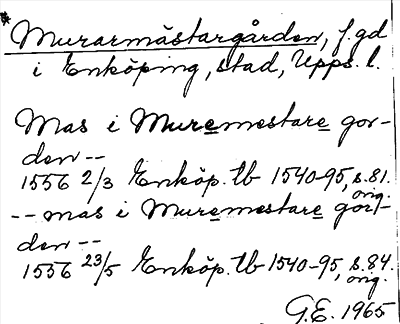 * Murarmästargården, f.gd
i Enköping, stad, Upps. l.
Mas i Muremestare gor-
den --
1556 2/3 Enköp. tb 1540-95, s.81.
orig.
-- mas i Muremestare gor-
den --
1556 23/5 Enköp. tb 1540-95, s.84.
orig.
G.E. 1965